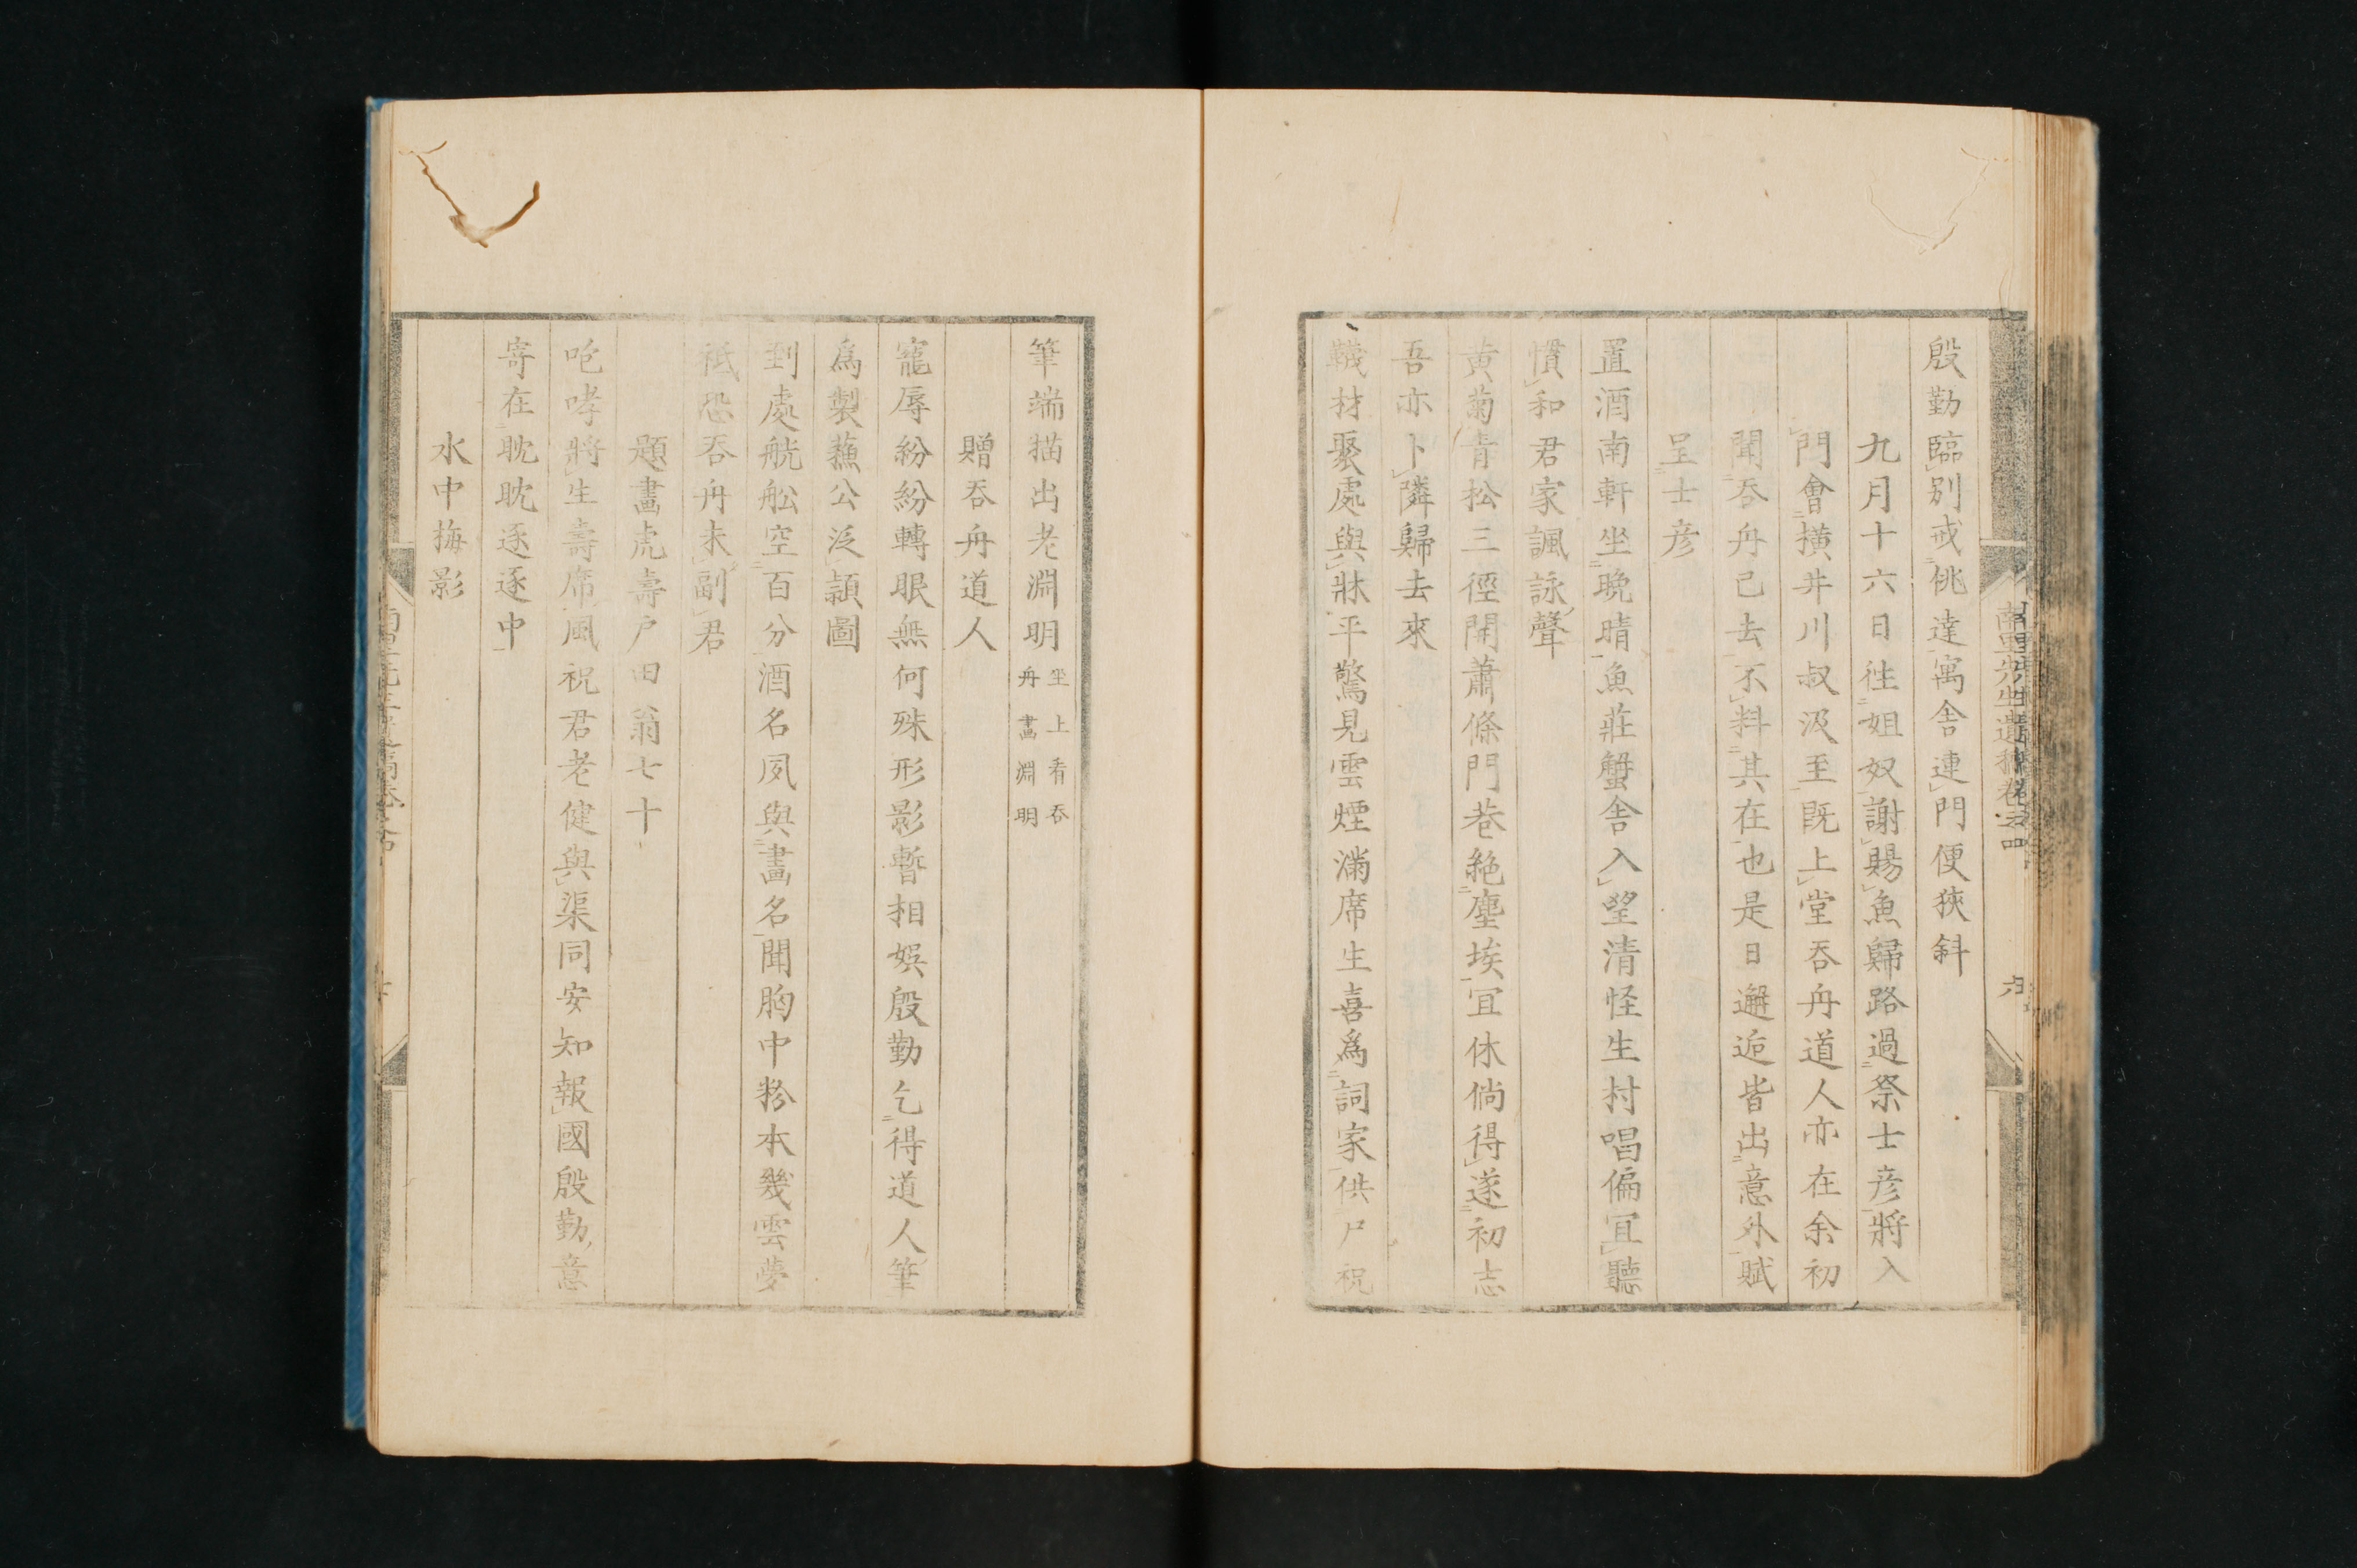 殷勤臨別戒佻達寓舍連門便狹斜
九月十六日往姐奴謝賜魚歸路過祭士彦將入
門會橫井川叔汲至既上堂呑舟道人亦在余初
聞呑舟已去不料其在也是日邂逅皆出意外賦
呈士彦
置酒南軒坐晩晴魚莊蟹舎入望清怪生村唱偏宜聽
慣和君家諷詠聲
黄菊青松三徑開蕭條門巷絶塵埃宜休倘得遂初志
吾亦卜隣歸去來
韈材聚處與牀平驚見雲煙滿席生喜爲詞家供尸祝
筆端描出老淵明
坐上看呑
舟畫淵明
贈呑舟道人
寵辱紛紛轉眼無何殊形影暫相娯殷勤乞得道人筆
爲製蘓公泛潁圖
到處觥舩空百分酒名夙與畫名聞胸中粉本幾雲夢
祗恐呑舟未副君
題畫虎壽戸田翁七十
咆哮將生壽席風祝君老健與渠同安知報國殷勤意
寄在耽耽逐逐中
水中梅影